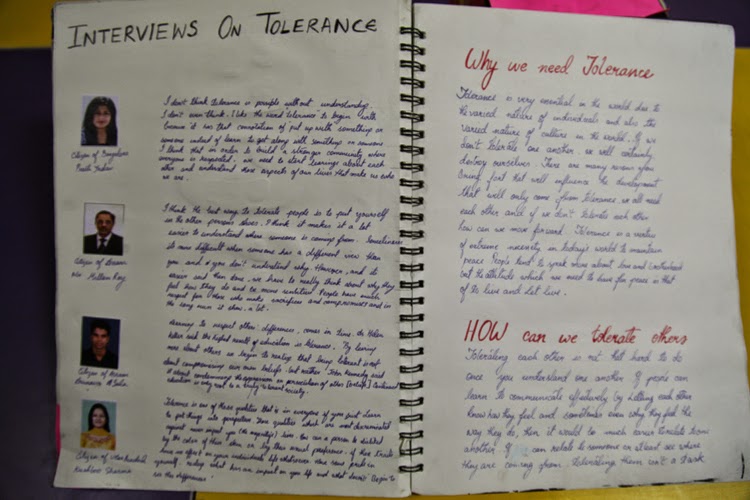 INTERVIEWS ON TOLERANCE
I don't think tolerance is possible without understanding.
I don't even think I like the word tolerance to begin with
because it has that connotation of put up with something or
someone instead of learn to get along with something or someone
I think that in order to build a stronger community where
everyone is respected. we need to start learning about each
other and understand those aspects of our lives that make us who
we are.
Citizen of Bangalore
South India
I think the best way to tolerate people is to put yourself
in the other persons shoes. I think it makes it a lot
easier to understand where someone is coming from. Sometimes
its more difficult when someone has a different view than
you and you don't understand why. However, and its
easier said then done, we have to really think about why they
feel how they do and be more sensitive. People have much
respect for those who make sacrifices and compromises and in
the long run it shows a lot.
Citizen of Assam
Learning to respect others' differences, comes in time. Dr Helen
Keller said the highest result of education is tolerance. By learning
more about others we begin to realize that being tolerant is not
about compromising our own beliefs but rather John Kennedy said
it about condemning the oppression or persecution of other [beliefs] Continued
education is very vital to a truly tolerant society.
Citizen of Assam
Tolerance is one of those qualities that is in everyone if you just learn
to put things into perspective. Those qualities which are most discriminated
against mean input you (the majority) him. You can a person is disliked
by the color of their skin or by their sexual preference. If these traits
have no effect on your individual life whatsoever, then some faults in
yourself. realize what has an impact on you life and what doesn't. Begin to
see this difference.
Citizen of Uttarakhand
Sharma
Why we need Tolerance
Tolerance is very essential in the world due to
the varied nature of individuals and also the
varied nature of culture in the world. If we
don't tolerate one another. we will certainly
destroy ourselves. There are many reasons for
being fact that will influence the development
that will only come from tolerance. we all need
each other and if we don't tolerate each other
how can we move forward. Tolerance is a virtue
of extreme necessity in today's world to maintain
peace. People have to speak more about love and brotherhood
but the attitude which we need to have for peace is that
of to live and let live.
HOW can we tolerate others
Tolerating each other is not that hard to do
once you understand one another. If people can
learn to communicate effectively by letting each other
know how they feel and sometimes even why they feel the
way they do, then it would be much easier tolerate one
another. If can relate to someone or atleast see where
they are coming from. tolerating them isn't a task